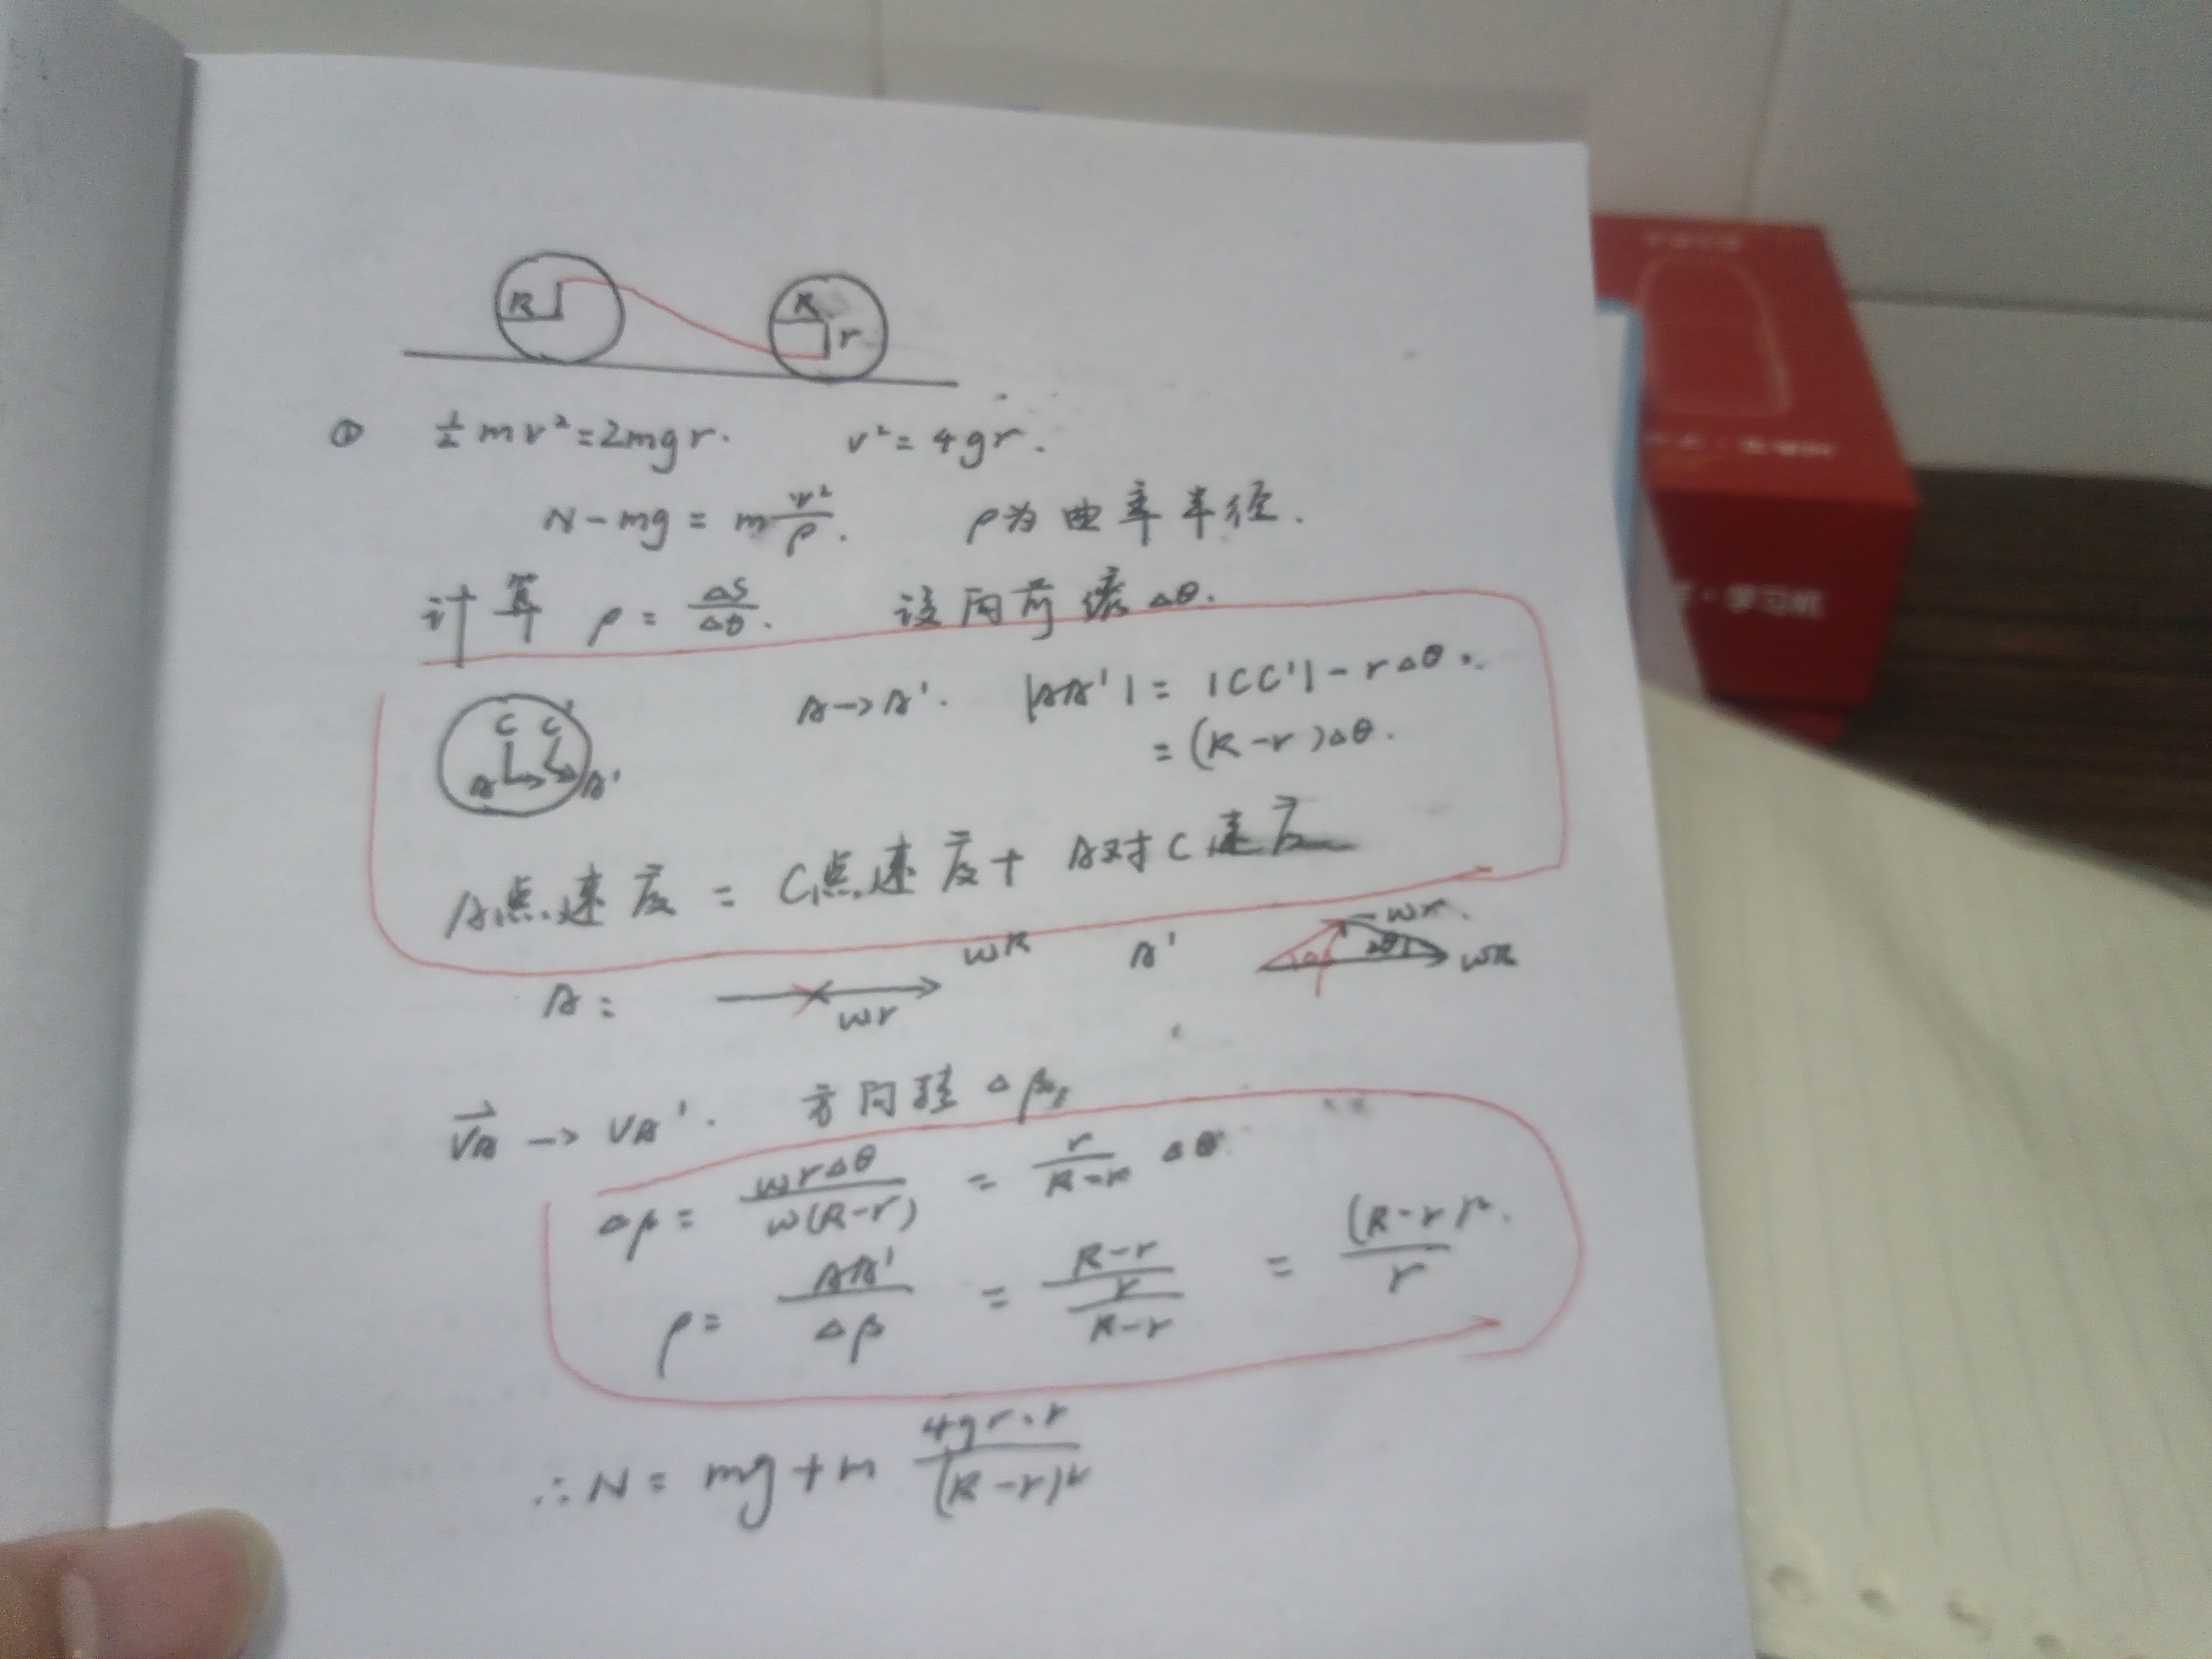 R
R
r
① ½mv²=2mgr. v²=4gr.
N-mg = m v²/ρ. ρ为曲率半径.
计算 ρ = ΔS/Δθ. 设向前滚Δθ.
C C'
A A'
A→A'. |AA'| = |CC'| - rΔθ.
= (R-r)Δθ.
A点速度 = C点速度 + A对C速度
A: ωR ωr
A' ωr. Δθ ωR
→VA → VA'. 方向转Δβ,
Δβ = ωrΔθ/ω(R-r) = r/(R-r) Δθ
ρ = AA'/Δβ = (R-r)/(r/(R-r)) = (R-r)²/r.
∴N = mg+m 4gr·r/(R-r)²
学习机